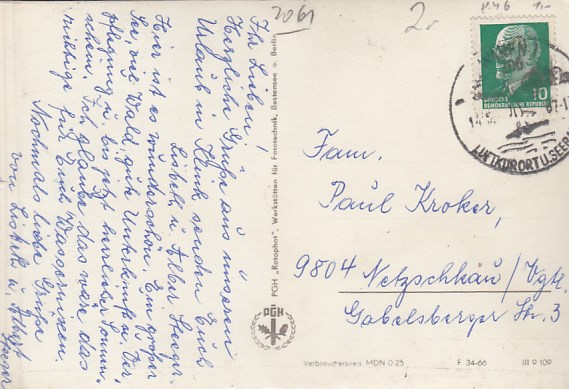 2061
2.-
Ihr Lieben!
Herzliche Grüße aus unserm
Urlaub in Lenk senden Euch
Lisbeth u. Alber Steeger.
Hier ist es wunderschön. Ein großer
See, viel Wald, gute Unterkunft u. Ver-
pflegung u. bis jetzt herrlicher Sonnen-
schein. Ich glaube das wäre das
richtige für Eure Wassernixen.
Nochmals liebe Grüße
von Lisbeth u. Albert
Steeger
PGH „Rotophot", Werkstätten für Fototechnik, Bestensee b. Berlin
PGH
10
DEUTSCHE DEMOKRATISCHE REPUBLIK
LUFTKURORT U. SEEBAD
Fam.
Paul Kroker,
9804 Netzschkau/Vgtl.
Gabelsberger Str. 3
Verbraucherpreis MDN 0.25
F 34-66
III 9 109